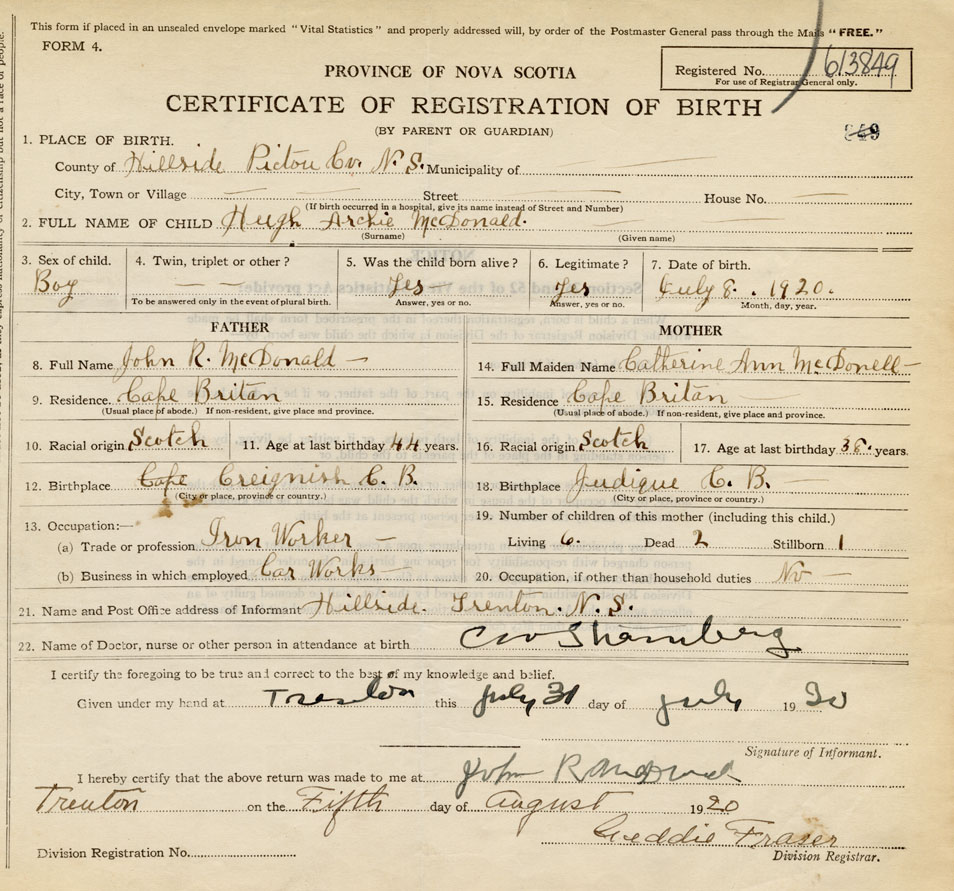 This form if placed in an unsealed envelope marked "Vital Statistics" and properly addressed will, by order of the Postmaster General pass through the Mails "FREE."
FORM 4.
Registered No. 613849
For use of Registrar General only.
PROVINCE OF NOVA SCOTIA
CERTIFICATE OF REGISTRATION OF BIRTH
(BY PARENT OR GUARDIAN)
849
1. PLACE OF BIRTH.
County of Hillside Pictou Co. N. S. Municipality of
City, Town or Village Street House No.
(If birth occurred in a hospital, give its name instead of Street and Number)
2. FULL NAME OF CHILD Hugh Archie McDonald.
(Surname) (Given name)
3. Sex of child. 4. Twin, triplet or other? 5. Was the child born alive? 6. Legitimate? 7. Date of birth.
Boy Yes Yes July 8. 1920.
To be answered only in the event of plural birth. Answer, yes or no. Answer, yes or no. Month, day, year.
FATHER MOTHER
8. Full Name John R. McDonald 14. Full Maiden Name Catherine Ann McDonell
9. Residence. Cape Britan 15. Residence Cape Britan
(Usual place of abode.) If non-resident, give place and province. (Usual place of abode.) If non-resident, give place and province.
10. Racial origin Scotch 11. Age at last birthday 44 years. 16. Racial origin Scotch 17. Age at last birthday 38. years.
12. Birthplace Cape Creignish C. B. 18. Birthplace Jurdique C. B.
(City or place, province or country.) (City or place, province or country.)
13. Occupation:— 19. Number of children of this mother (including this child.)
(a) Trade or profession Iron Worker Living 6. Dead 2 Stillborn 1
(b) Business in which employed Car Works 20. Occupation, if other than household duties No
21. Name and Post Office address of Informant Hillside. Trenton. N. S.
22. Name of Doctor, nurse or other person in attendance at birth
I certify the foregoing to be true and correct to the best of my knowledge and belief.
Given under my hand at Trenton this July 31 day of July 1920
Signature of Informant.
I hereby certify that the above return was made to me at John R McDonald
Trenton on the Fifth day of August 1920
Geddie Fraser
Division Registration No. Division Registrar.